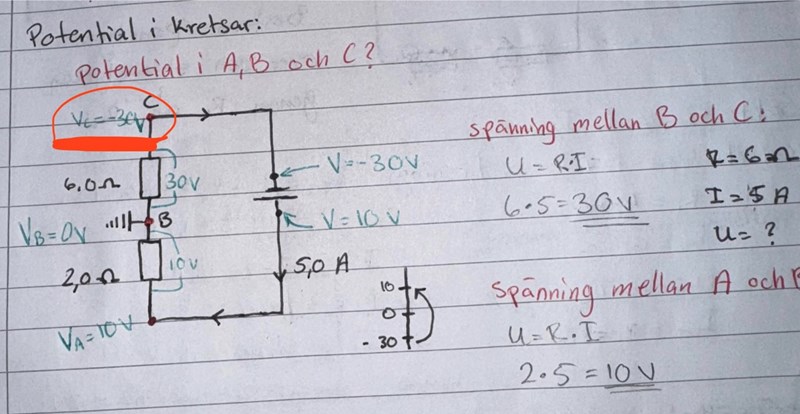 Potential i kretsar:
Potential i A, B och C?
C
Vc=-30V
6,0Ω
30V
VB=0V
B
2,0Ω
10V
VA=10V
V=-30V
V=10V
5,0 A
10
0
-30
spänning mellan B och C:
U=R·I
6·5=30V
R=6Ω
I=5A
U=?
Spänning mellan A och B
U=R·I
2·5=10V